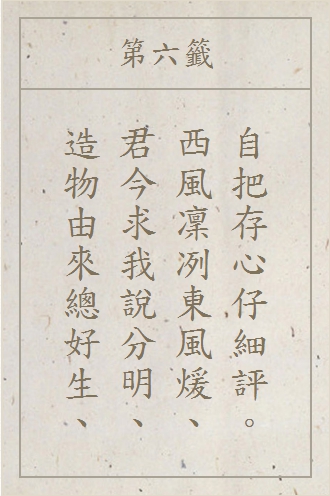 第六籤
造物由來總好生、
君今求我說分明、
西風凜冽東風煖、
自把存心仔細評。